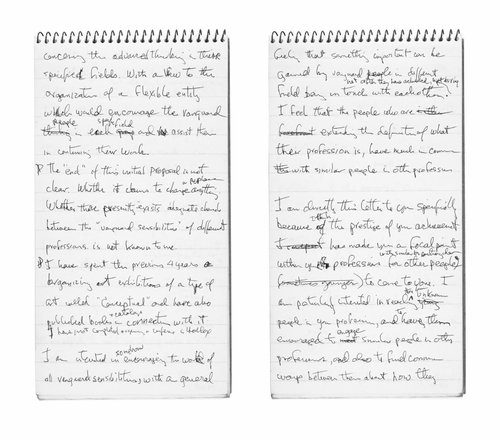 concerning the advanced thinking in these
specified fields. With a view to the
organization of a flexible entity
which would encourage the vanguard
people specified
in each and assist them
in continuing their work.
The "end" of this initial proposal is not
clear. Whether it claims to change or replace anything
Whether there presently exists adequate channels
between the "vanguard sensibilities" of different
professions is not known to me.
I have spent the previous 4 years
organizing art exhibitions of a type of
art called "Conceptual" and have also
catalogs
published books in connection with it
I have just completed organizing a in Halifax
somehow
I am interested in encouraging the work of
all vanguard sensibilities, with a general
feeling that something important can be
gained by vanguard people in different
field being in touch with each other.
I feel that the people who are
extending the definition of what
their profession is, have much in common
with similar people in other profession
I am directing this letter to you specifically
because of the prestige of your achievement
has made you a focal point
within your profession for other people
to come to you. I
am particularly interested in reaching unknown
people in your profession, and have them
encouraged to similar people in other
professions, and also to find common
ways between them about how they